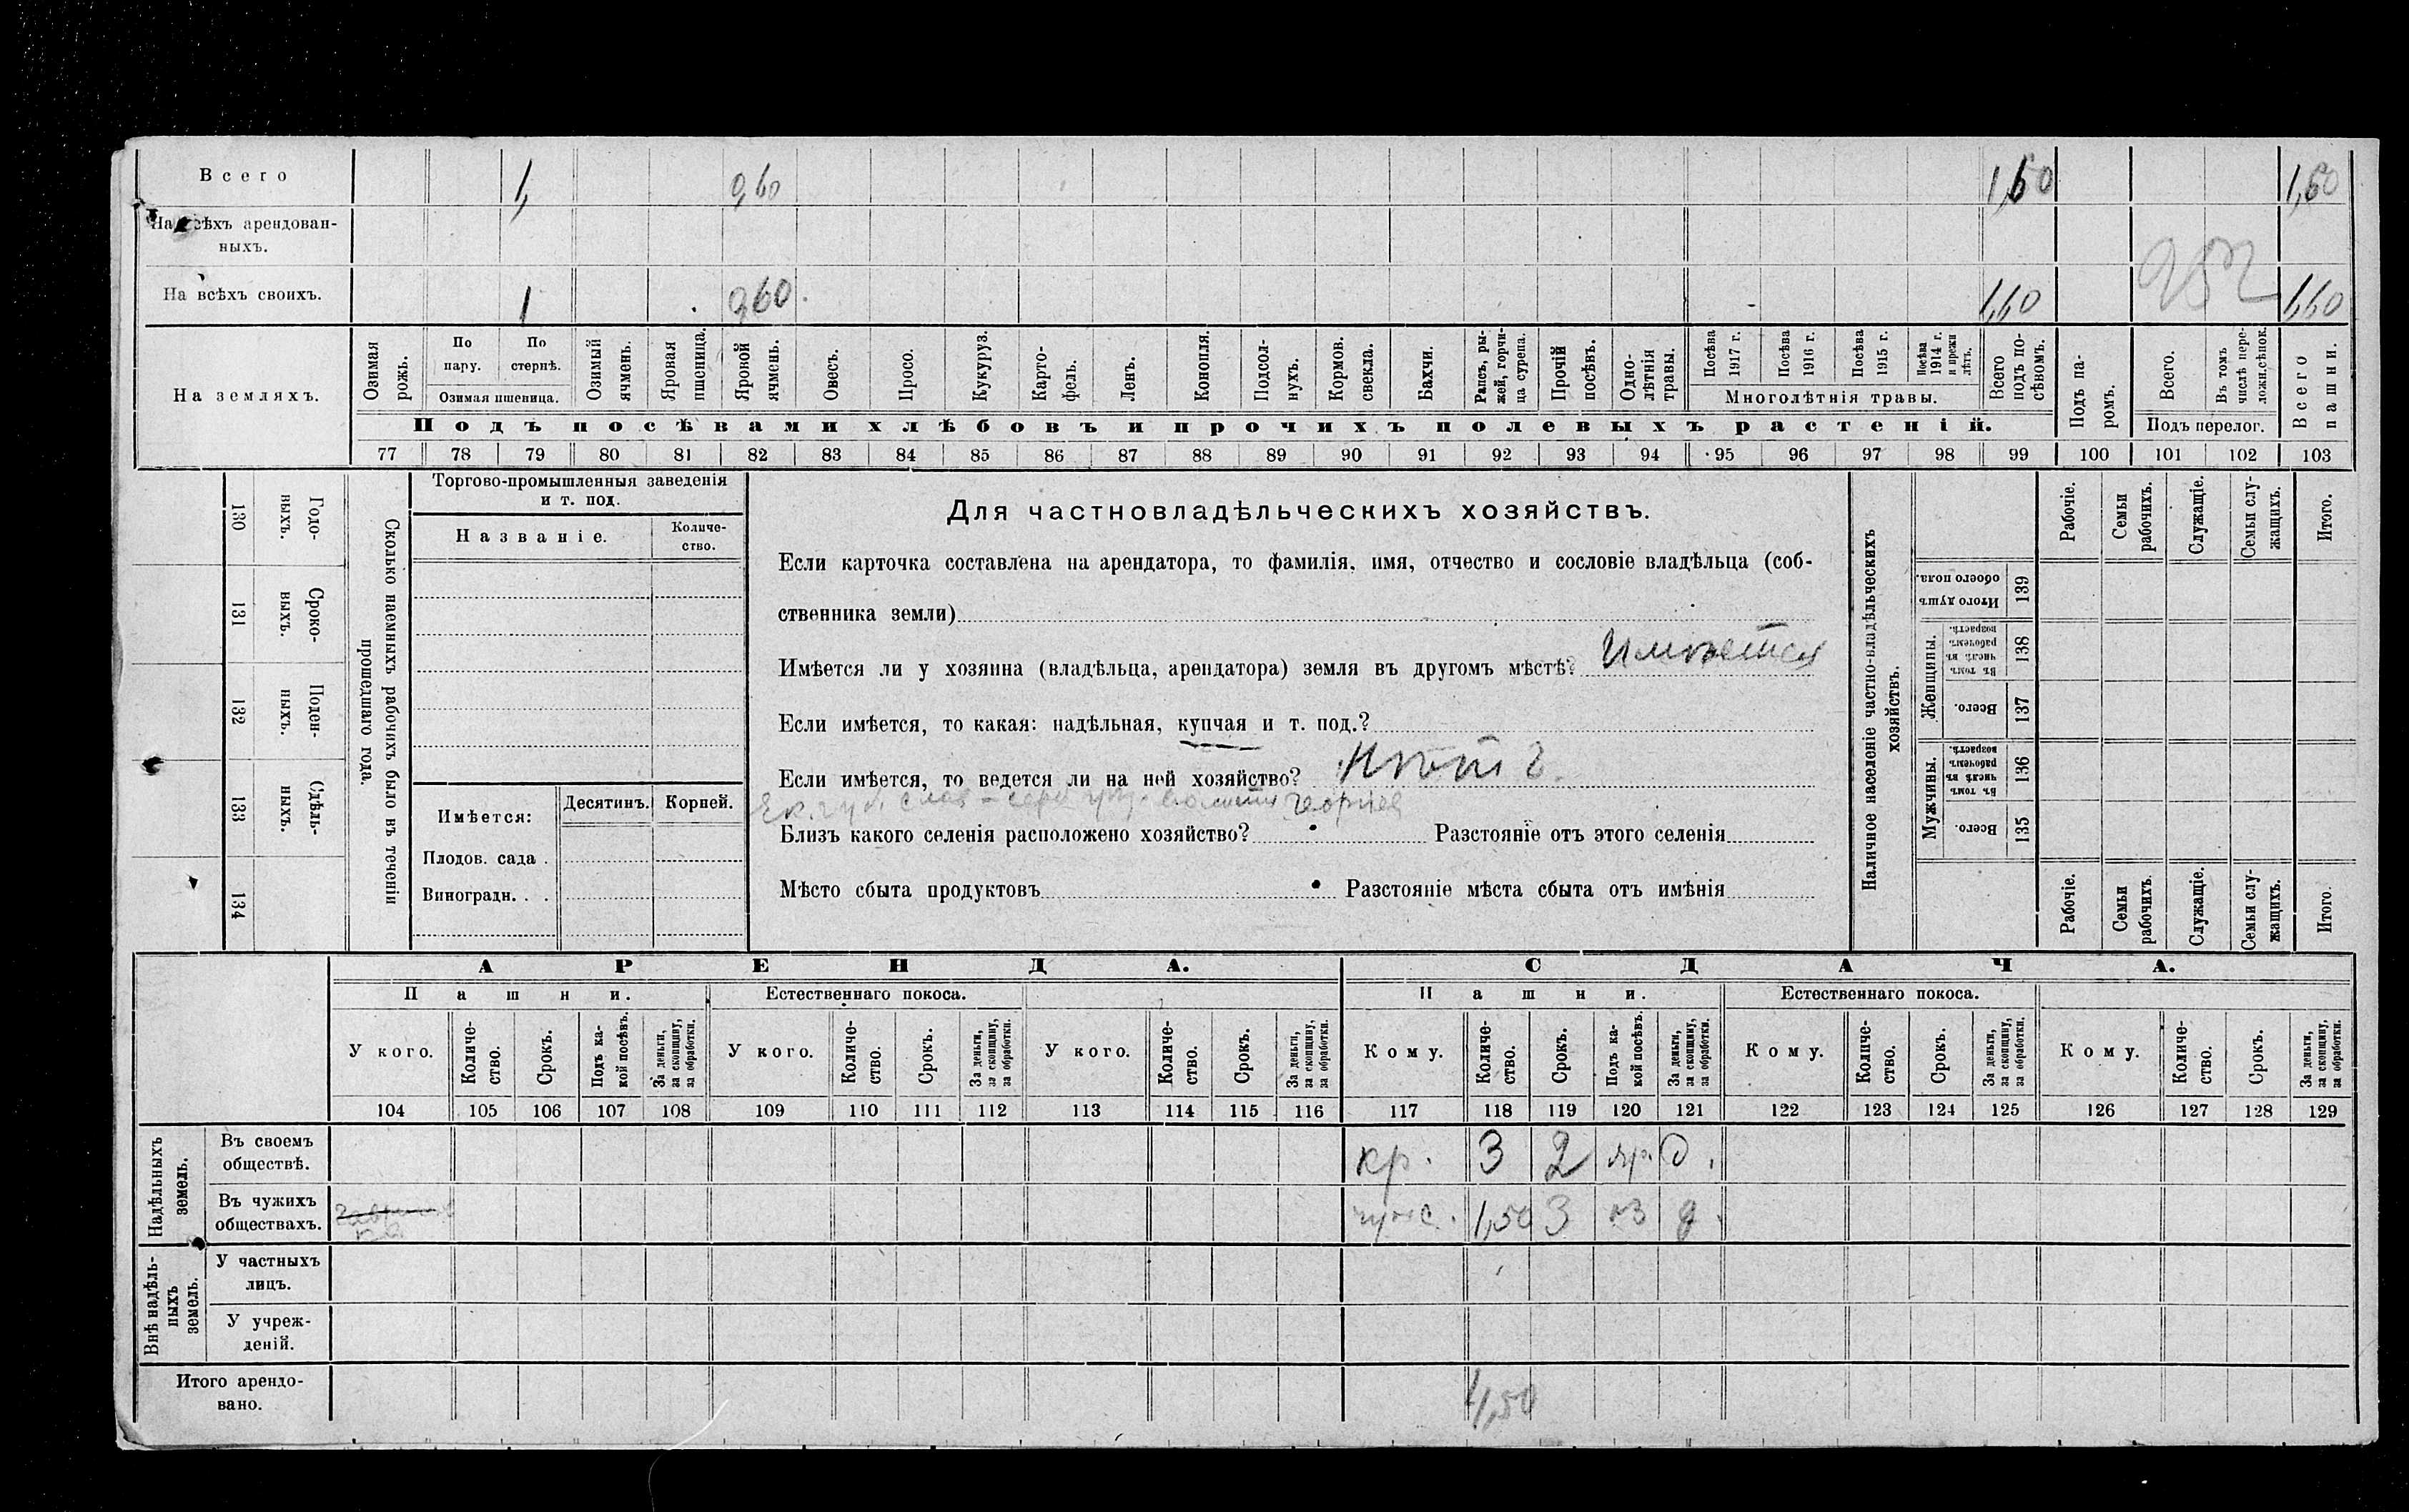 Всего 1, 0,60 1,60 1,60
На всѣхъ арендован-
ныхъ.
На всѣхъ своихъ. 1 0,60 1,60 1,60
На земляхъ.
Озимая рожь.
По пару.
По стернѣ.
Озимая пшеница.
Озимый ячмень.
Яровая пшеница.
Яровой ячмень.
Овесъ.
Просо.
Кукуруз.
Карто-
фель.
Ленъ.
Конопля.
Подсол-
нухъ.
Кормов.
свекла.
Бахчи.
Рапсъ, ры-
жей, горчи-
ца сурепа.
Прочій
посѣвъ.
Одно-
лѣтнія
травы.
Посѣва
1917 г.
Посѣва
1916 г.
Посѣва
1915 г.
Посѣва
1914 г.
и прежн
лѣтъ.
Многолѣтнія травы.
Всего
подъ по-
сѣвомъ.
Подъ па-
ромъ.
Всего.
Въ томъ
числѣ пере-
ложн.сѣнок.
Подъ перелог.
Всего
пашни.
Подъ посѣвами хлѣбовъ и прочихъ полевыхъ растеній.
77 78 79 80 81 82 83 84 85 86 87 88 89 90 91 92 93 94 95 96 97 98 99 100 101 102 103
Годо-
выхъ.
130
Сроко-
выхъ.
131
Поден-
ныхъ.
132
Сдѣль-
ныхъ.
133
134
Сколько наемныхъ рабочихъ было въ теченіи
прошедшаго года.
Торгово-промышленныя заведенія
и т. под.
Названіе.
Количе-
ство.
Имѣется:
Десятинъ.
Корней.
Плодов. сада .
Виноградн. . .
Для частновладѣльческихъ хозяйствъ.
Если карточка составлена на арендатора, то фамилія, имя, отчество и сословіе владѣльца (соб-
ственника земли)
Имѣется ли у хозяина (владѣльца, арендатора) земля въ другомъ мѣстѣ? Имѣется
Если имѣется, то какая: надѣльная, купчая и т. под.?
Если имѣется, то ведется ли на ней хозяйство? Нѣтъ
Близъ какого селенія расположено хозяйство? Разстояніе отъ этого селенія
Мѣсто сбыта продуктовъ Разстояніе мѣста сбыта отъ имѣнія
Наличное населеніе частно-владѣльческихъ
хозяйствъ.
Рабочіе.
Семьи
рабочихъ.
Служащіе.
Семьи слу-
жащихъ.
Итого.
Итого душъ
обоего пола.
139
Женщины.
Въ томъ
числѣ въ
рабочемъ
возрастѣ.
138
Всего.
137
Мужчины.
Въ томъ
числѣ въ
рабочемъ
возрастѣ.
136
Всего.
135
Рабочіе.
Семьи
рабочихъ.
Служащіе.
Семьи слу-
жащихъ.
Итого.
АРЕНДА. СДАЧА.
Пашни. Естественнаго покоса. Пашни. Естественнаго покоса.
У кого.
Количе-
ство.
Срокъ.
Подъ ка-
кой посѣвъ.
За деньги,
за скопщину,
за обработки.
У кого.
Количе-
ство.
Срокъ.
За деньги,
за скопщину,
за обработки.
У кого.
Количе-
ство.
Срокъ.
За деньги,
за скопщину,
за обработки.
Кому.
Количе-
ство.
Срокъ.
Подъ ка-
кой посѣвъ.
За деньги,
за скопщину,
за обработки.
Кому.
Количе-
ство.
Срокъ.
За деньги,
за скопщину,
за обработки.
Кому.
Количе-
ство.
Срокъ.
За деньги,
за скопщину,
за обработки.
104 105 106 107 108 109 110 111 112 113 114 115 116 117 118 119 120 121 122 123 124 125 126 127 128 129
Надѣльныхъ
земель.
Въ своемъ
обществѣ. кр. 3 2 яр. д.
Въ чужихъ
обществахъ. 1,50 3
Внѣ надѣль-
ныхъ
земель.
У частныхъ
лицъ.
У учреж-
деній.
Итого арендо-
вано. 4,50